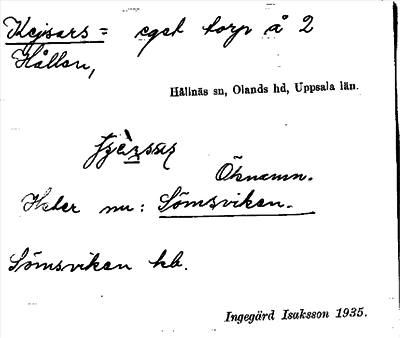 Kejsars = eget torp å 2
Hållen,
Hållnäs sn, Olands hd, Uppsala län.
Öknamn.
Heter nu: Sömsviken.
Sömsviken kb.
Ingegärd Isaksson 1935.